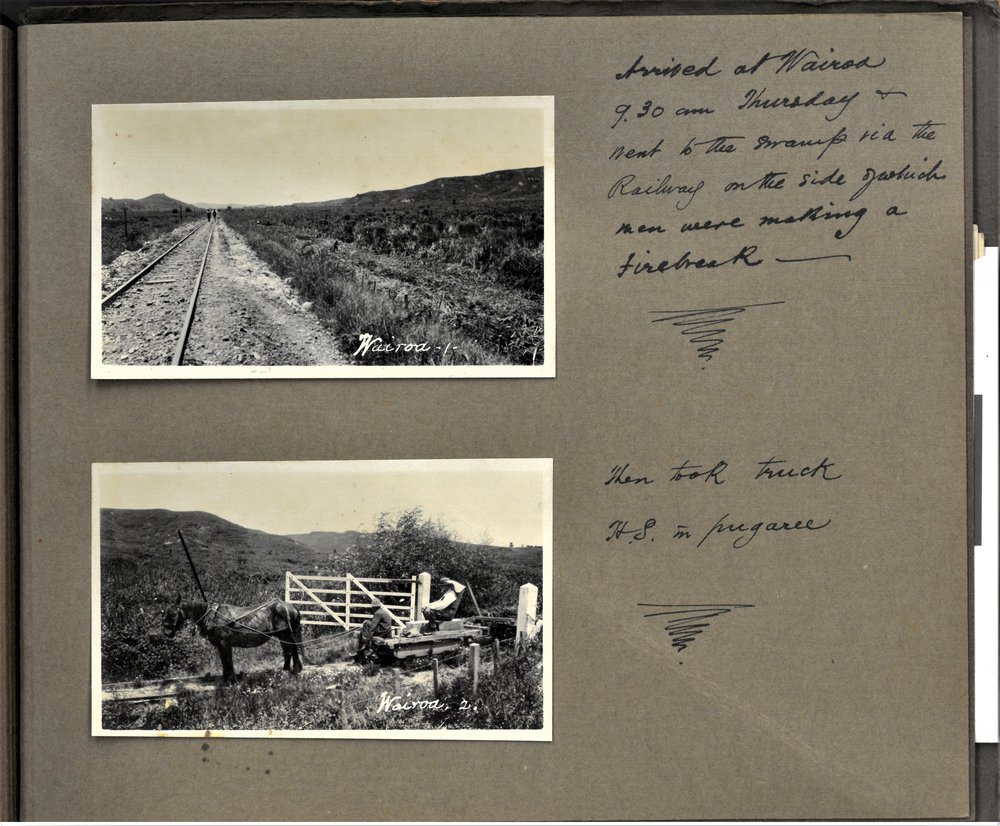 Arrived at Wairoa
9.30 am Thursday &
went to the swamp via the
Railway on the side of which
men were making a
firebreak —
Wairoa -1-
Then took truck
H.S. in pugaree
Wairoa. 2.